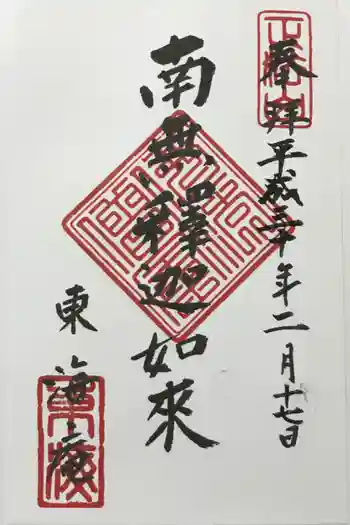 奉拝平成三十年二月十七日
南無釋迦如來
東海庵